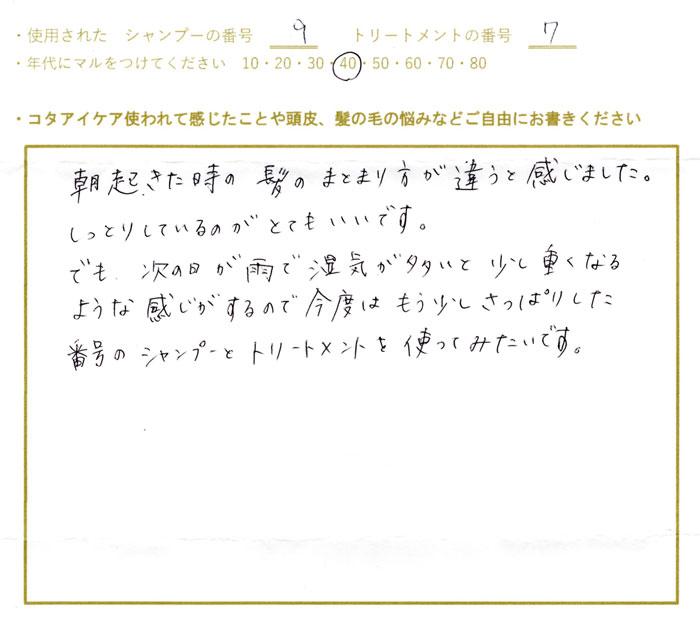 ・使用された　シャンプーの番号　9　トリートメントの番号　7
・年代にマルをつけてください　10・20・30・40・50・60・70・80
・コタアイケア使われて感じたことや頭皮、髪の毛の悩みなどご自由にお書きください
朝起きた時の髪のまとまり方が違うと感じました。
しっとりしているのがとてもいいです。
でも、次の日が雨で湿気が多いと少し重くなる
ような感じがするので今度はもう少しさっぱりした
番号のシャンプーとトリートメントを使ってみたいです。